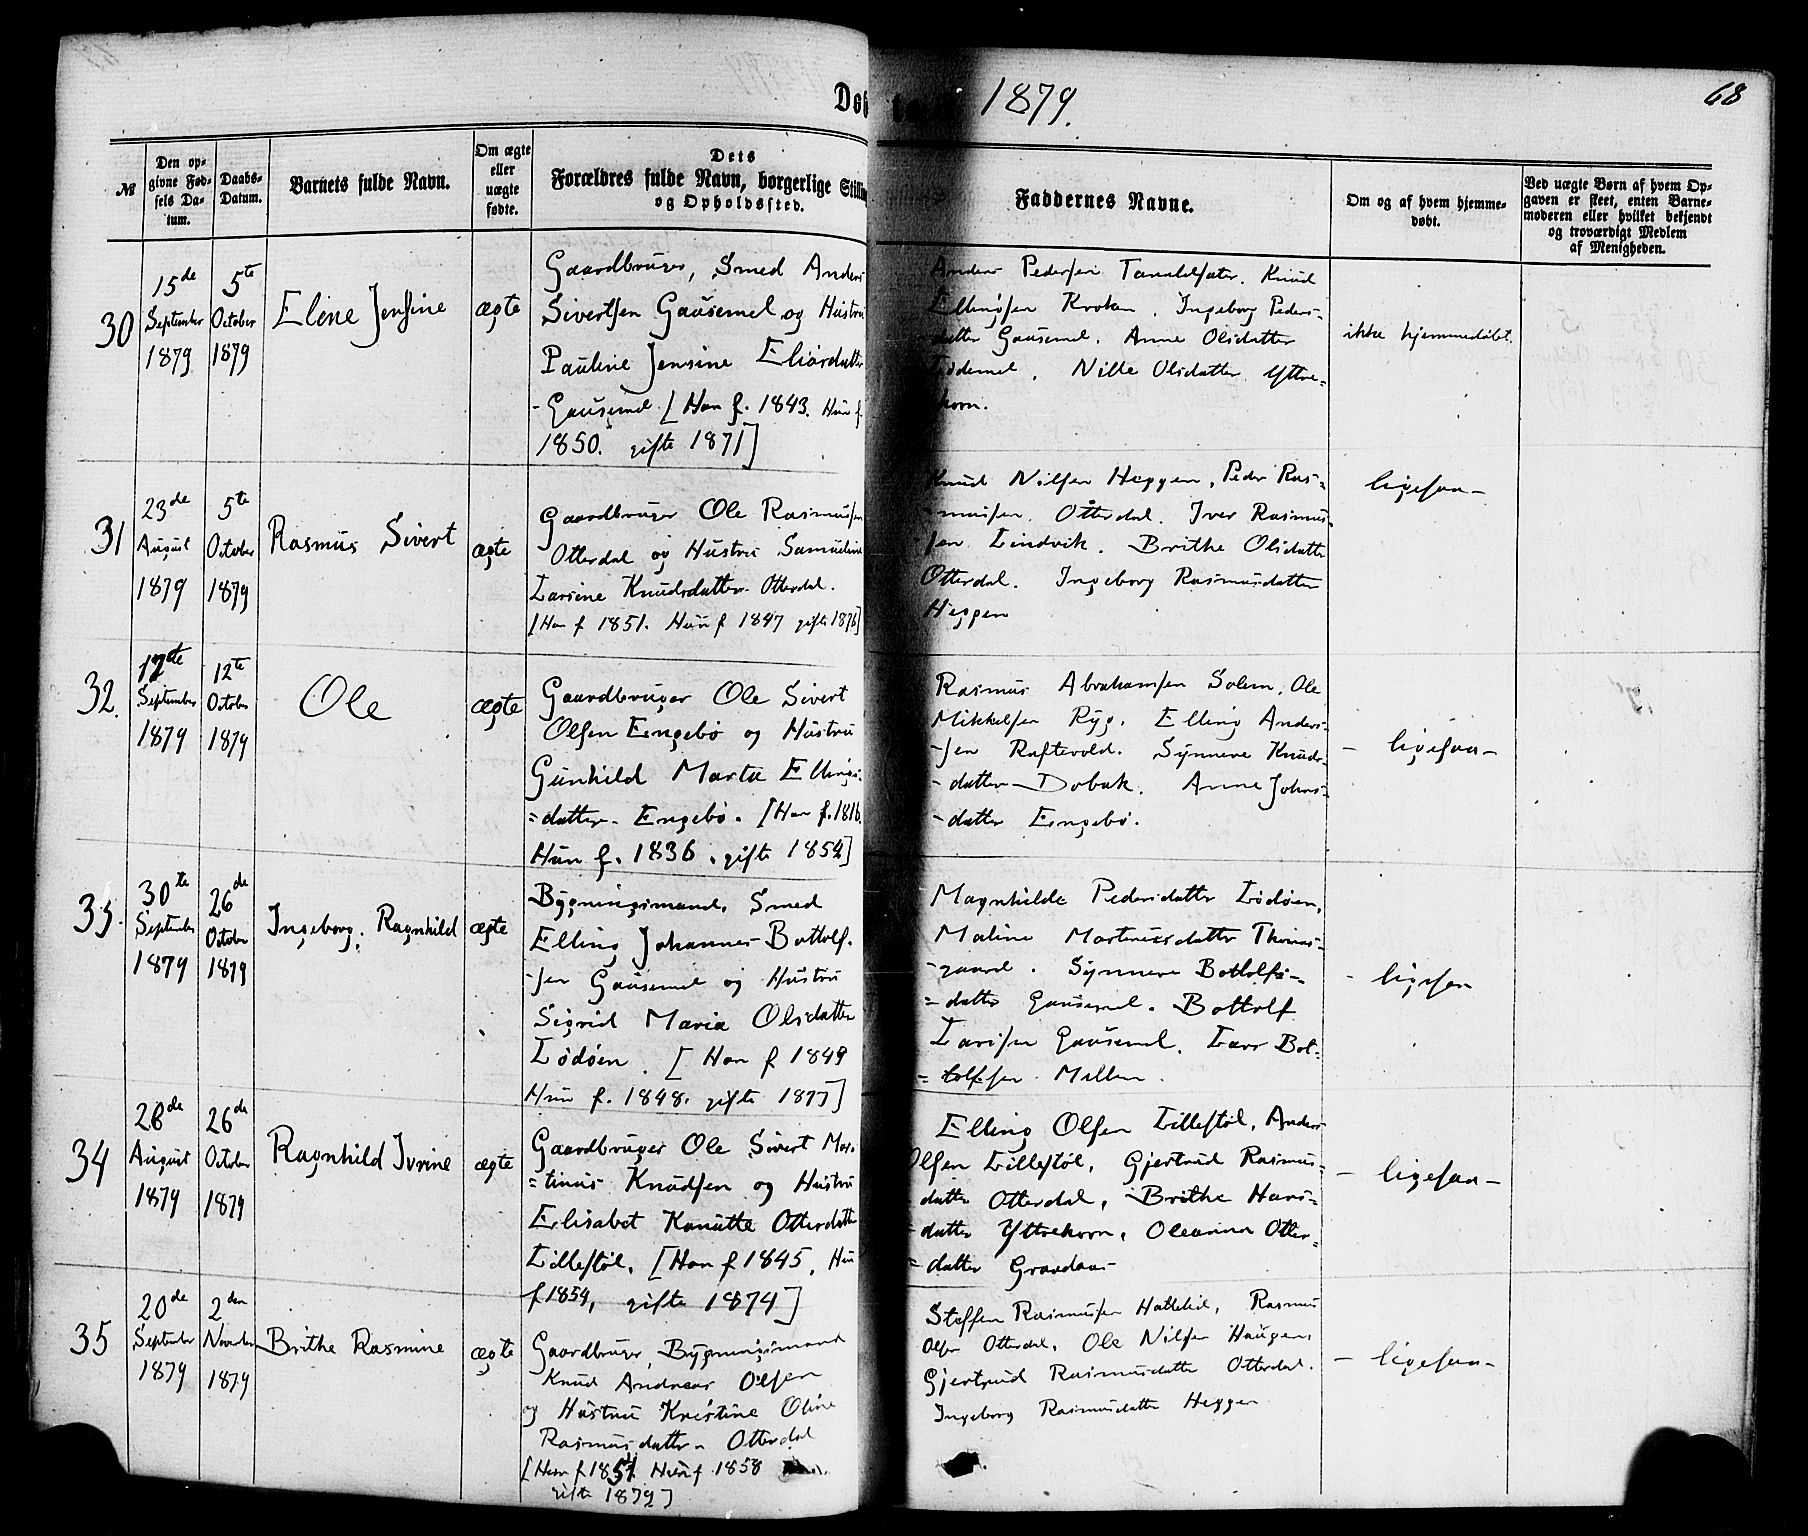 Døb
1879.
68
№
Den op-
givne Fød-
sels Da-
tum.
Daabs-
Datum.
Barnets fulde Navn.
Om ægte
eller
uægte
fødte.
Dets
Forældres fulde Navn, borgerlige Stilling
og Opholdssted.
Faddernes Navne.
Om og af hvem hjemme-
døbt.
Ved uægte Børn af hvem Op-
gaven er skeet, enten Barne-
moderen eller hvilket bekjendt
og troværdigt Medlem
af Menigheden.
30
15de
September
1879
5te
October
1879
Eline Jensine
ægte
Gaardbruger, Smed Anders
Sivertsen Gausemel og Hustru
Pauline Jensine Eliasdatter
- Gausemel [Han f. 1843. Hun f.
1850. gifte 1871]
Anders Pedersen Taraldsæter. Knud
Ellingsen Kroken. Ingeborg Peders-
datter Gausemel. Anne Olsdatter
Nille Olsdatter Yttre-
horn.
ikke hjemmedøbt.
31
23de
August
1879
5te
October
1879
Rasmus Sivert
ægte
Gaardbruger Ole Rasmussen
Otterdal og Hustru Samueline
Larsine Knudsdatter Otterdal.
[Han f 1851. Hun f 1847 gifte 1876]
Knud Nilsen Heggen, Peder Ras-
-mussen Otterdal. Iver Rasmus-
sen Lindvik. Brithe Olsdatter
Otterdal. Ingeborg Rasmusdatter
Heggen
ligesaa-
32.
17de
September
1879
12te
October
1879
Ole
ægte
Gaardbruger Ole Sivert
Olsen Engebø og Hustru
Gunhild Marta Ellings-
=datter- Engebø. [Han f. 1816.
Hun f. 1836. gifte 1854]
Rasmus Abrahamsen Solem, Ole
Mikkelsen Ryg. Elling Anders-
-sen Raftevold. Synneve Knuds-
-datter Dobak. Anne Johns-
-datter Engebø.
- ligesaa-
33.
30te
September
1879
26de
October
1879
Ingeborg Ragnhild
ægte
Bygningsmand, Smed
Elling Johannes Bottolf-
-sen Gausemel og Hustru
Sigrid Maria Olsdatter
Lødøen. [Han f 1849
Hun f. 1848. gifte 1877]
Magnhilde Pedersdatter Lødøen,
Maline Martinusdatter Thomas-
-gaard. Synneve Bottolfs-
=datter Gausemel. Bottolf
Larssen Gausemel. Lars Bot-
=tolfsen Mellem.
- ligesaa
34
28de
August
1879
26de
October
1879
Ragnhild Ivrine
ægte
Gaardbruger Ole Sivert Mar-
=tinus Knudsen og Hustru
Elisabet Knutte Otterdatter
Lillestøl. [Han f 1845, Hun
f 1854, gifte 1874]
Elling Olsen Lillestøl, Anders
Olsen Lillestøl, Gjertrud Rasmus-
datter Otterdal, Brithe Hans-
-datter Yttrehorn, Oleanna Otter-
=datter Gravdaas
- ligesaa-
35
20de
September
1879
2den
November
1879
Brithe Rasmine
ægte
Gaardbruger, Bygningsmand
Knud Andreas Olsen
og Hustru Kristine Oline
Rasmusdatter Otterdal
[Han f 1851 Hun f 1858
gifte 1879]
Steffen Rasmussen Hattelid, Rasmus
Olsen Otterdal, Ole Nilsen Haugen,
Gjertrud Rasmusdatter Otterdal.
Ingeborg Rasmusdatter Heggen
- ligesaa-